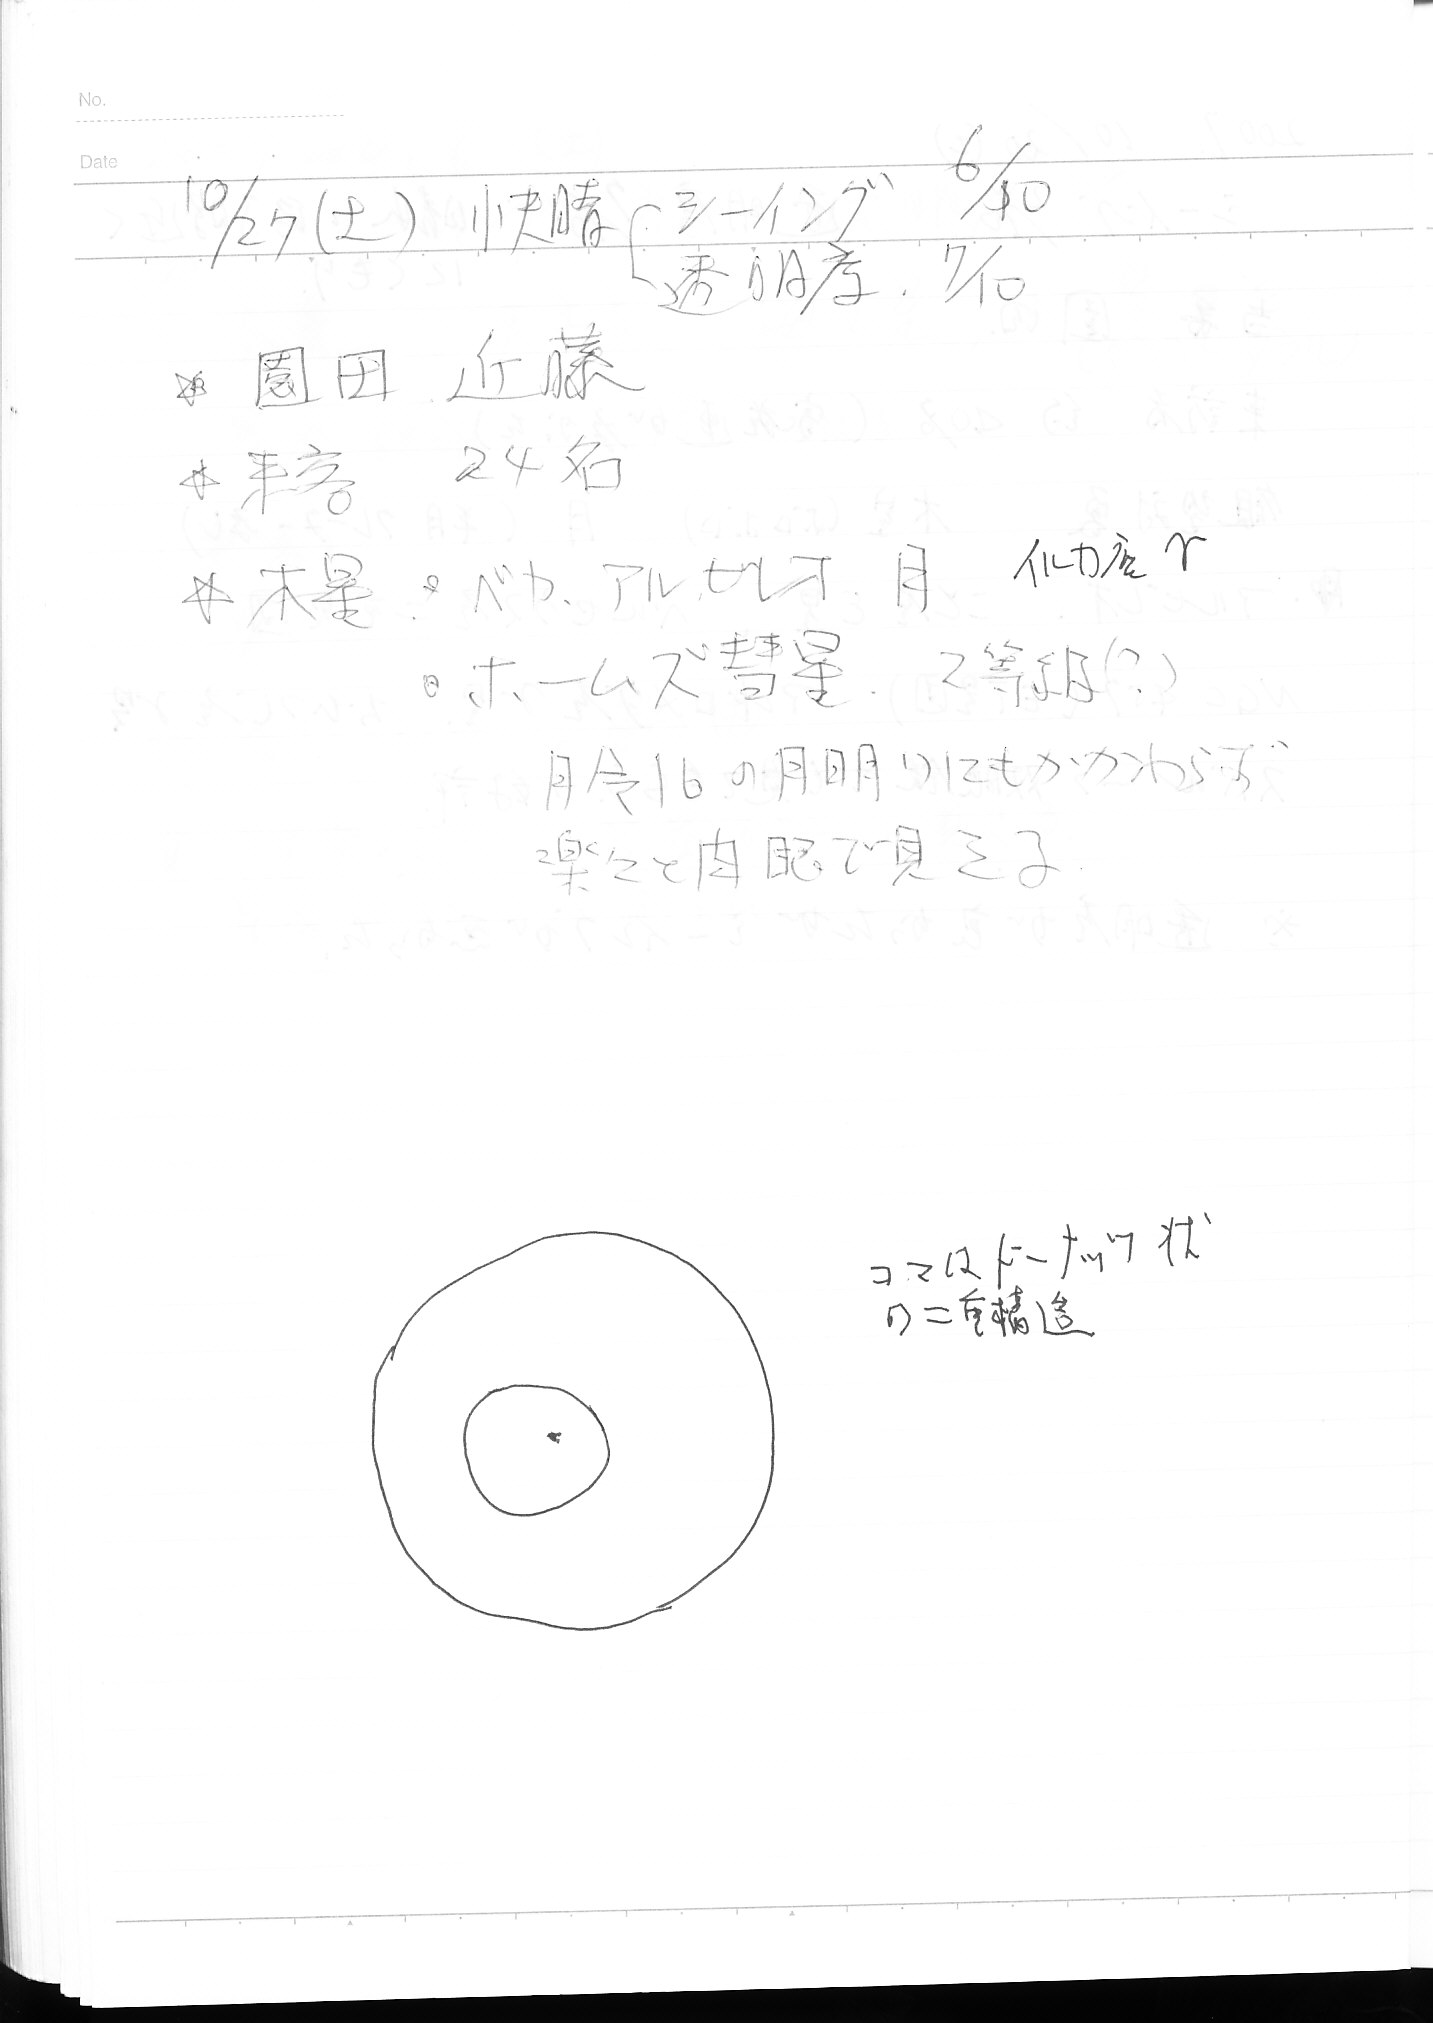 No.
Date
10/27(土) 快晴 シーイング 6/10
透明度. 7/10
☆ 園田 近藤
☆ 来客 24名
☆ 木星 • ベガ、アルビレオ 月 イルカ座 γ
• ホームズ彗星. 2等級(?)
月令16の月明りにもかかわらず
楽々と肉眼で見える.
コマはドーナッツ状
の二重構造